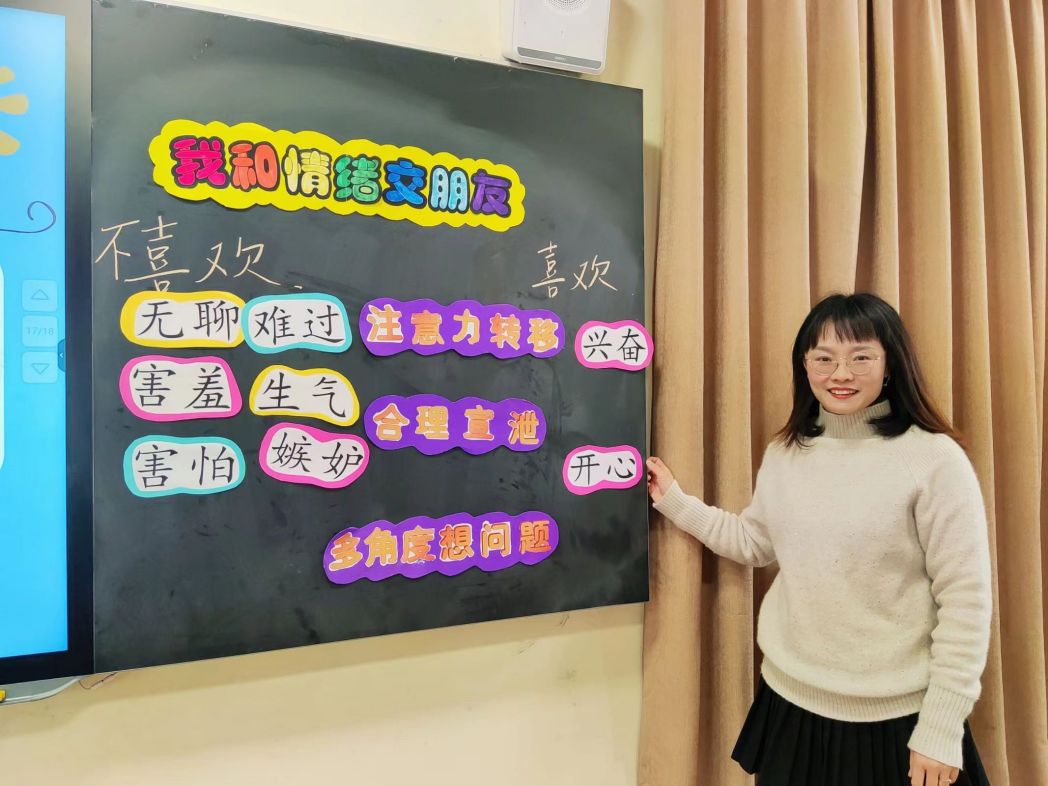 我和情绪交朋友
不喜欢
喜欢
无聊 难过 注意力转移 兴奋
害羞 生气 合理宣泄
害怕 嫉妒 开心
多角度想问题
17/18